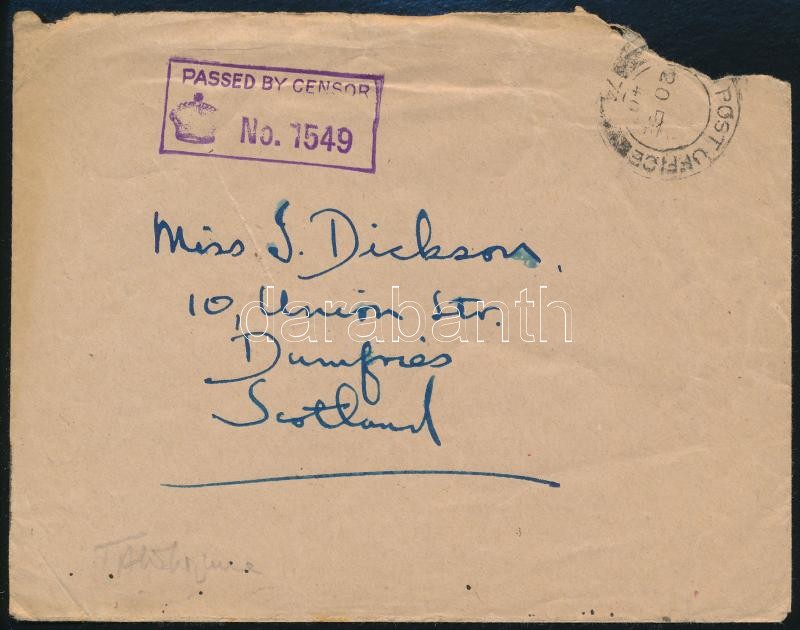 PASSED BY CENSOR
No. 1549
POST OFFICE
74
20
Miss J. Dickson,
10, Union Str.
Dumfries
Scotland
darabanth